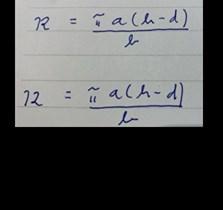 R = π a (h - d)
b
R = π a (h - d)
b